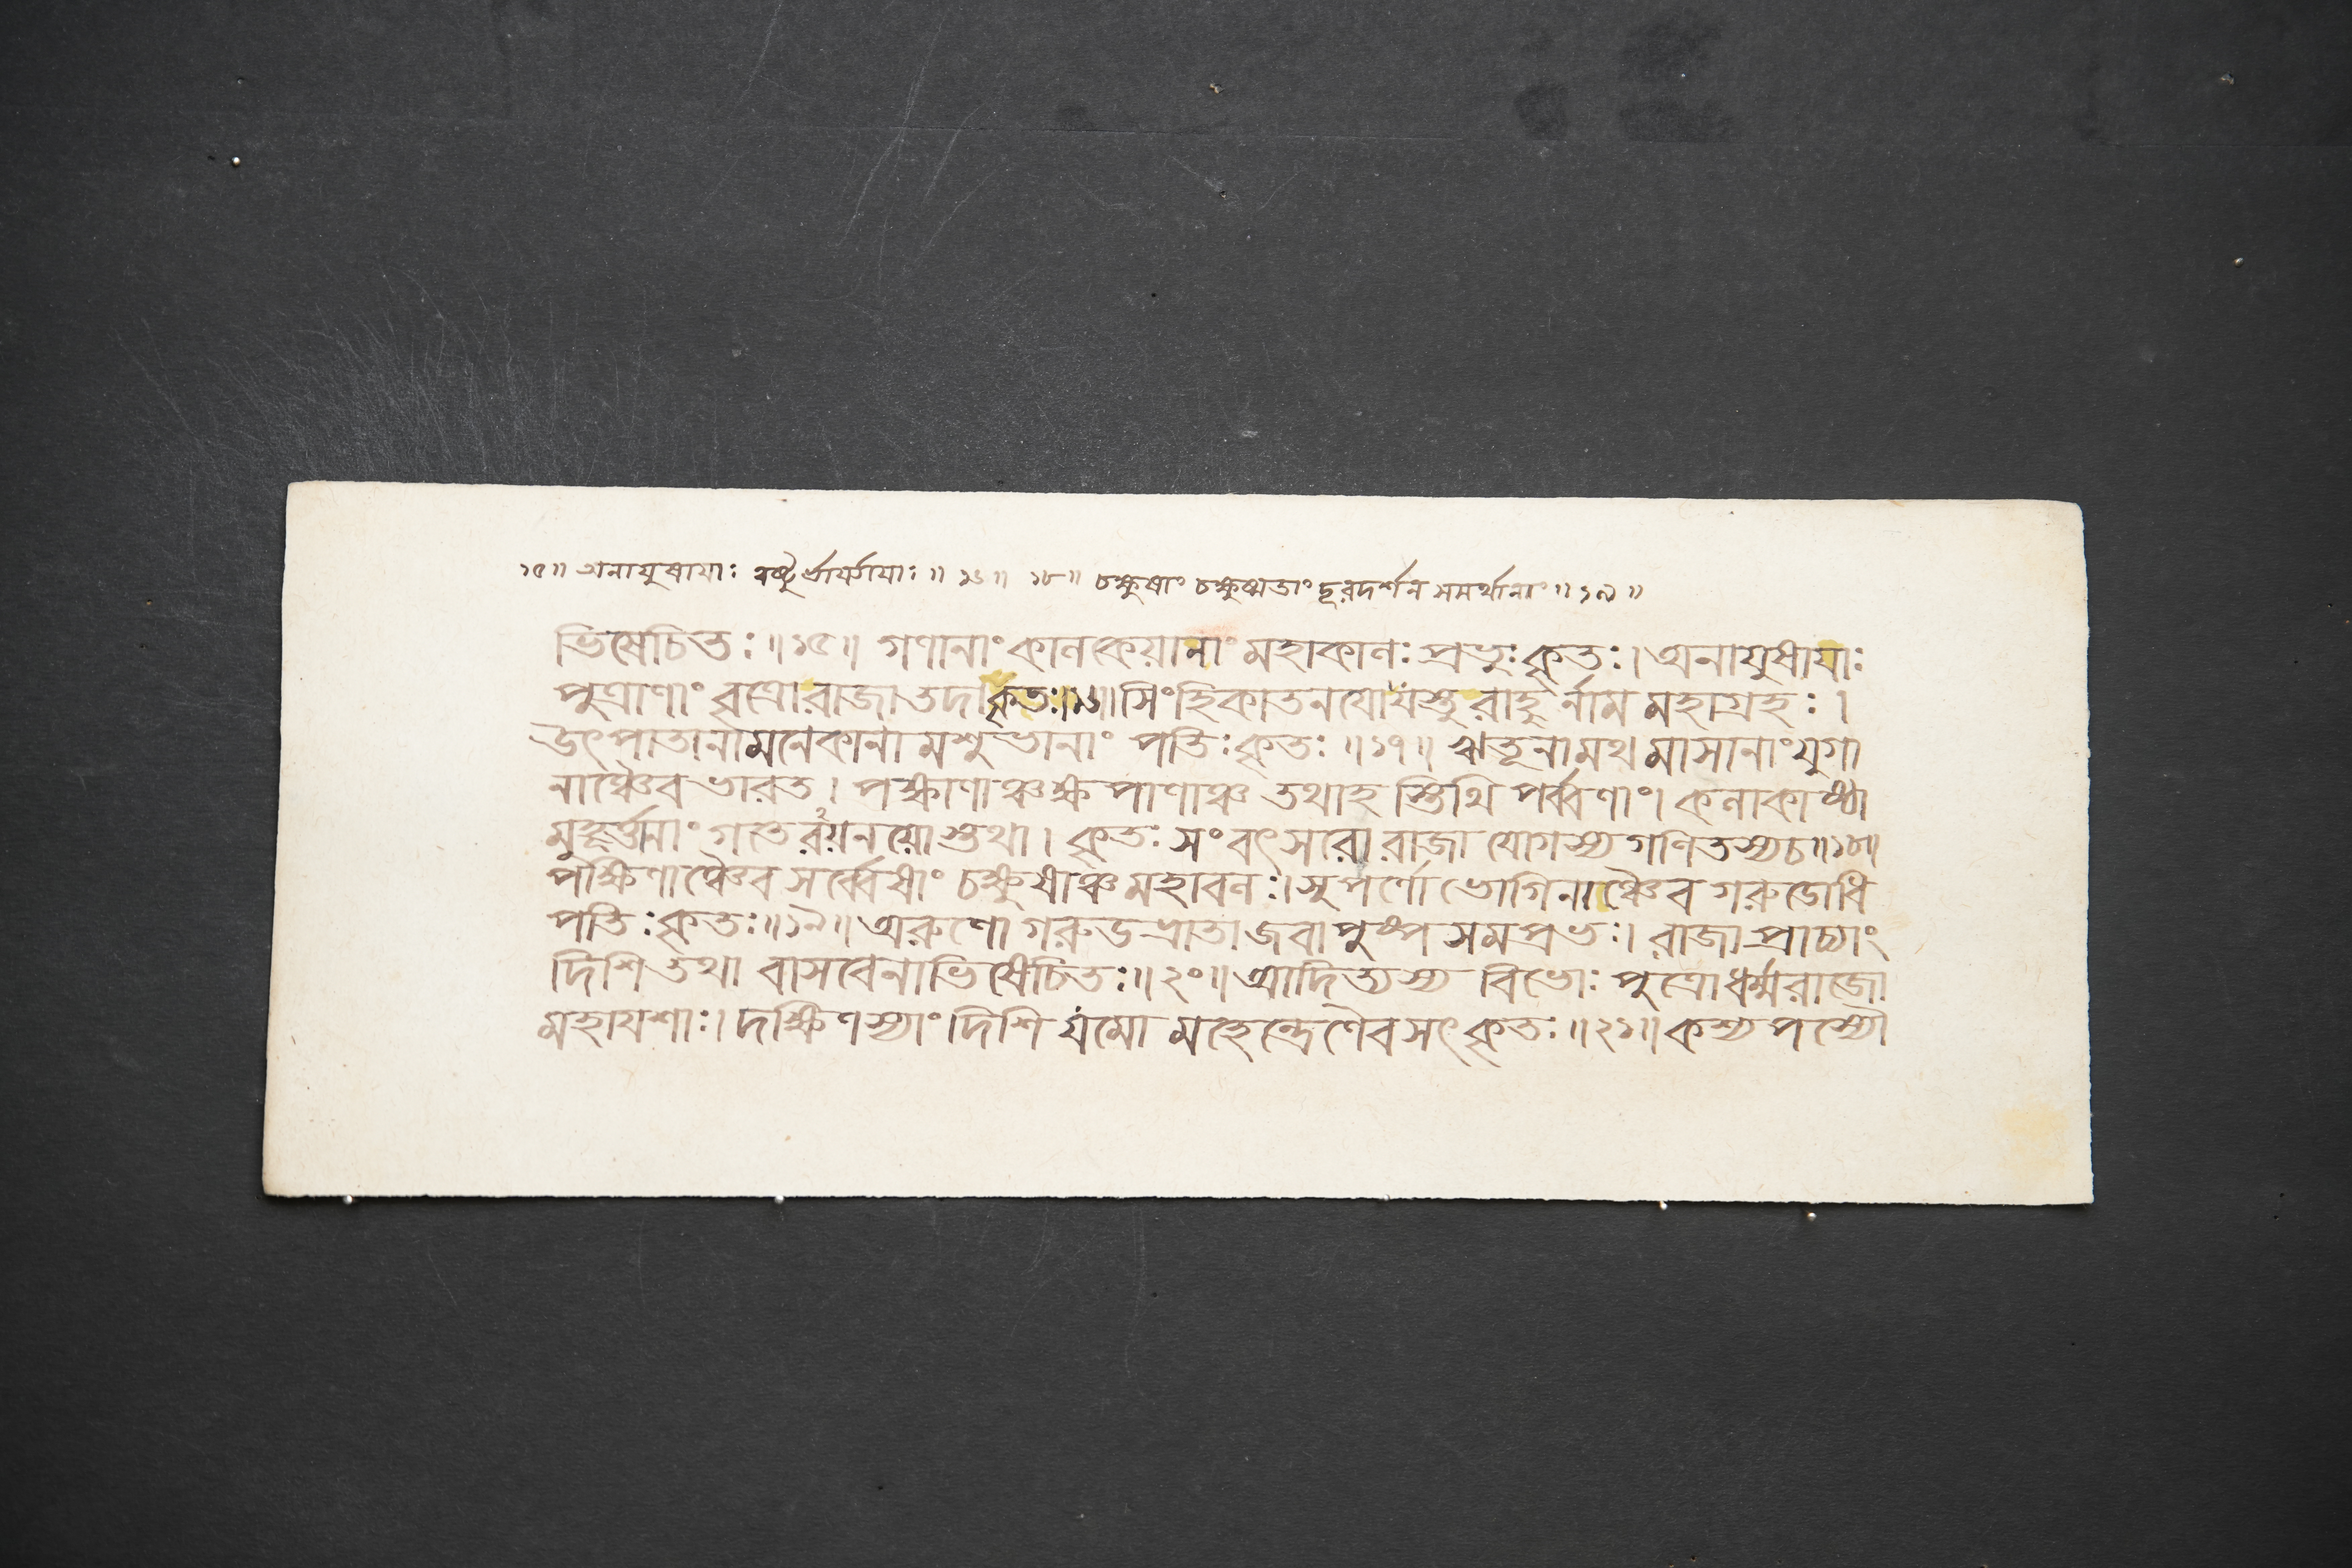 ১৫॥ অনায়ুষায়াঃ ত্বষ্টুর্ভার্য্যায়াঃ॥ ১৬॥ ১৮॥ চক্ষুষাং চক্ষুষ্মতাং দূরদর্শন সমর্থানাং॥১৯॥
ভিষেচিতঃ॥১৫॥ গণানাং কালকেয়ানাং মহাকালঃ প্রভুঃ কৃতঃ। অনায়ুষায়াঃ
পুত্রাণাং বৃত্রো রাজা তদা কৃতঃ॥১৬॥ সিংহিকাতনযো যস্তু রাহুর্নাম মহাগ্রহঃ।
উৎপাতানামনেকানামশুভানাং পতিঃ কৃতঃ॥১৭॥ ঋতূনামথ মাসানাং যুগা
নাঞ্চৈব ভারত। পক্ষাণাঞ্চ ক্ষপাণাঞ্চ তথাহস্তিথি পর্ব্বণাং। কলাকাষ্ঠা
মুহূর্ত্তানাং গতেরয়নয়োস্তথা। কৃতঃ সংবৎসরো রাজা যোগস্য গণিতস্য চ॥১৮॥
পক্ষিণাঞ্চৈব সর্ব্বেষাং চক্ষুষাঞ্চ মহাবলঃ। সুপর্ণো ভোগিনাঞ্চৈব গরুডোধি
পতিঃ কৃতঃ॥১৯॥ অরুণো গরুডভ্রাতা জবাপুষ্পসমপ্রভঃ। রাজা প্রাচ্যাং
দিশি তথা বাসবেনাভিষেচিতঃ॥২০॥ আদিত্যস্য বিভোঃ পুত্রো ধর্ম্মরাজো
মহাযশাঃ। দক্ষিণস্যাং দিশি যমো মহেন্দ্রেণৈব সৎকৃতঃ॥২১॥ কশ্যপস্যৌ